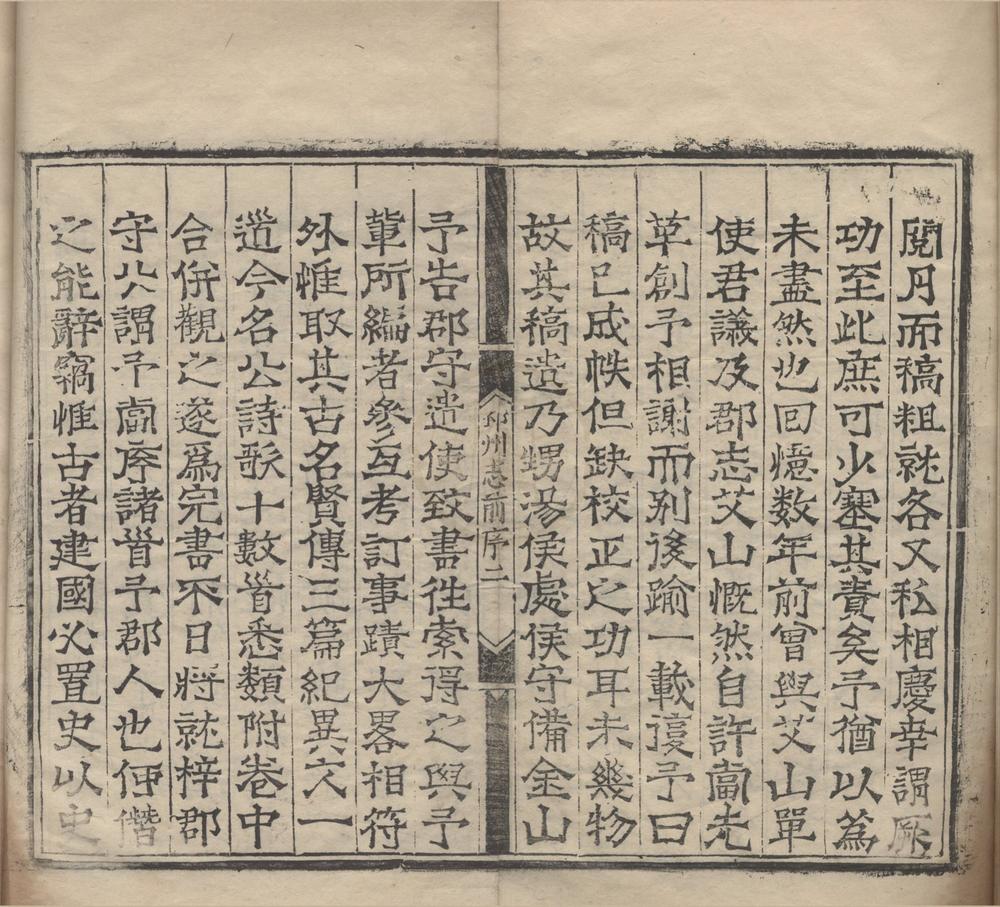 閱月而稿粗就各又私相慶幸謂厥
功至此庶可少塞其責矣予猶以為
未盡然也回憶数年前曾與艾山單
使君議及郡志艾山慨然自許當先
草創予相謝而别後踰一載復予曰
稿已成帙但缺校正之功耳未幾物
故其稿遺乃甥湯侯處侯守備金山
邳州志前序二
予告郡守遣使致書徃索得之與予
軰所編者參互考訂事蹟大畧相符
外惟取其古名賢傳三篇紀異文一
道今名公詩歌十數首悉類附卷中
合併觀之遂爲完書不日將就梓郡
守公謂予當序諸首予郡人也何僭
之能辭竊惟古者建國必置史以史